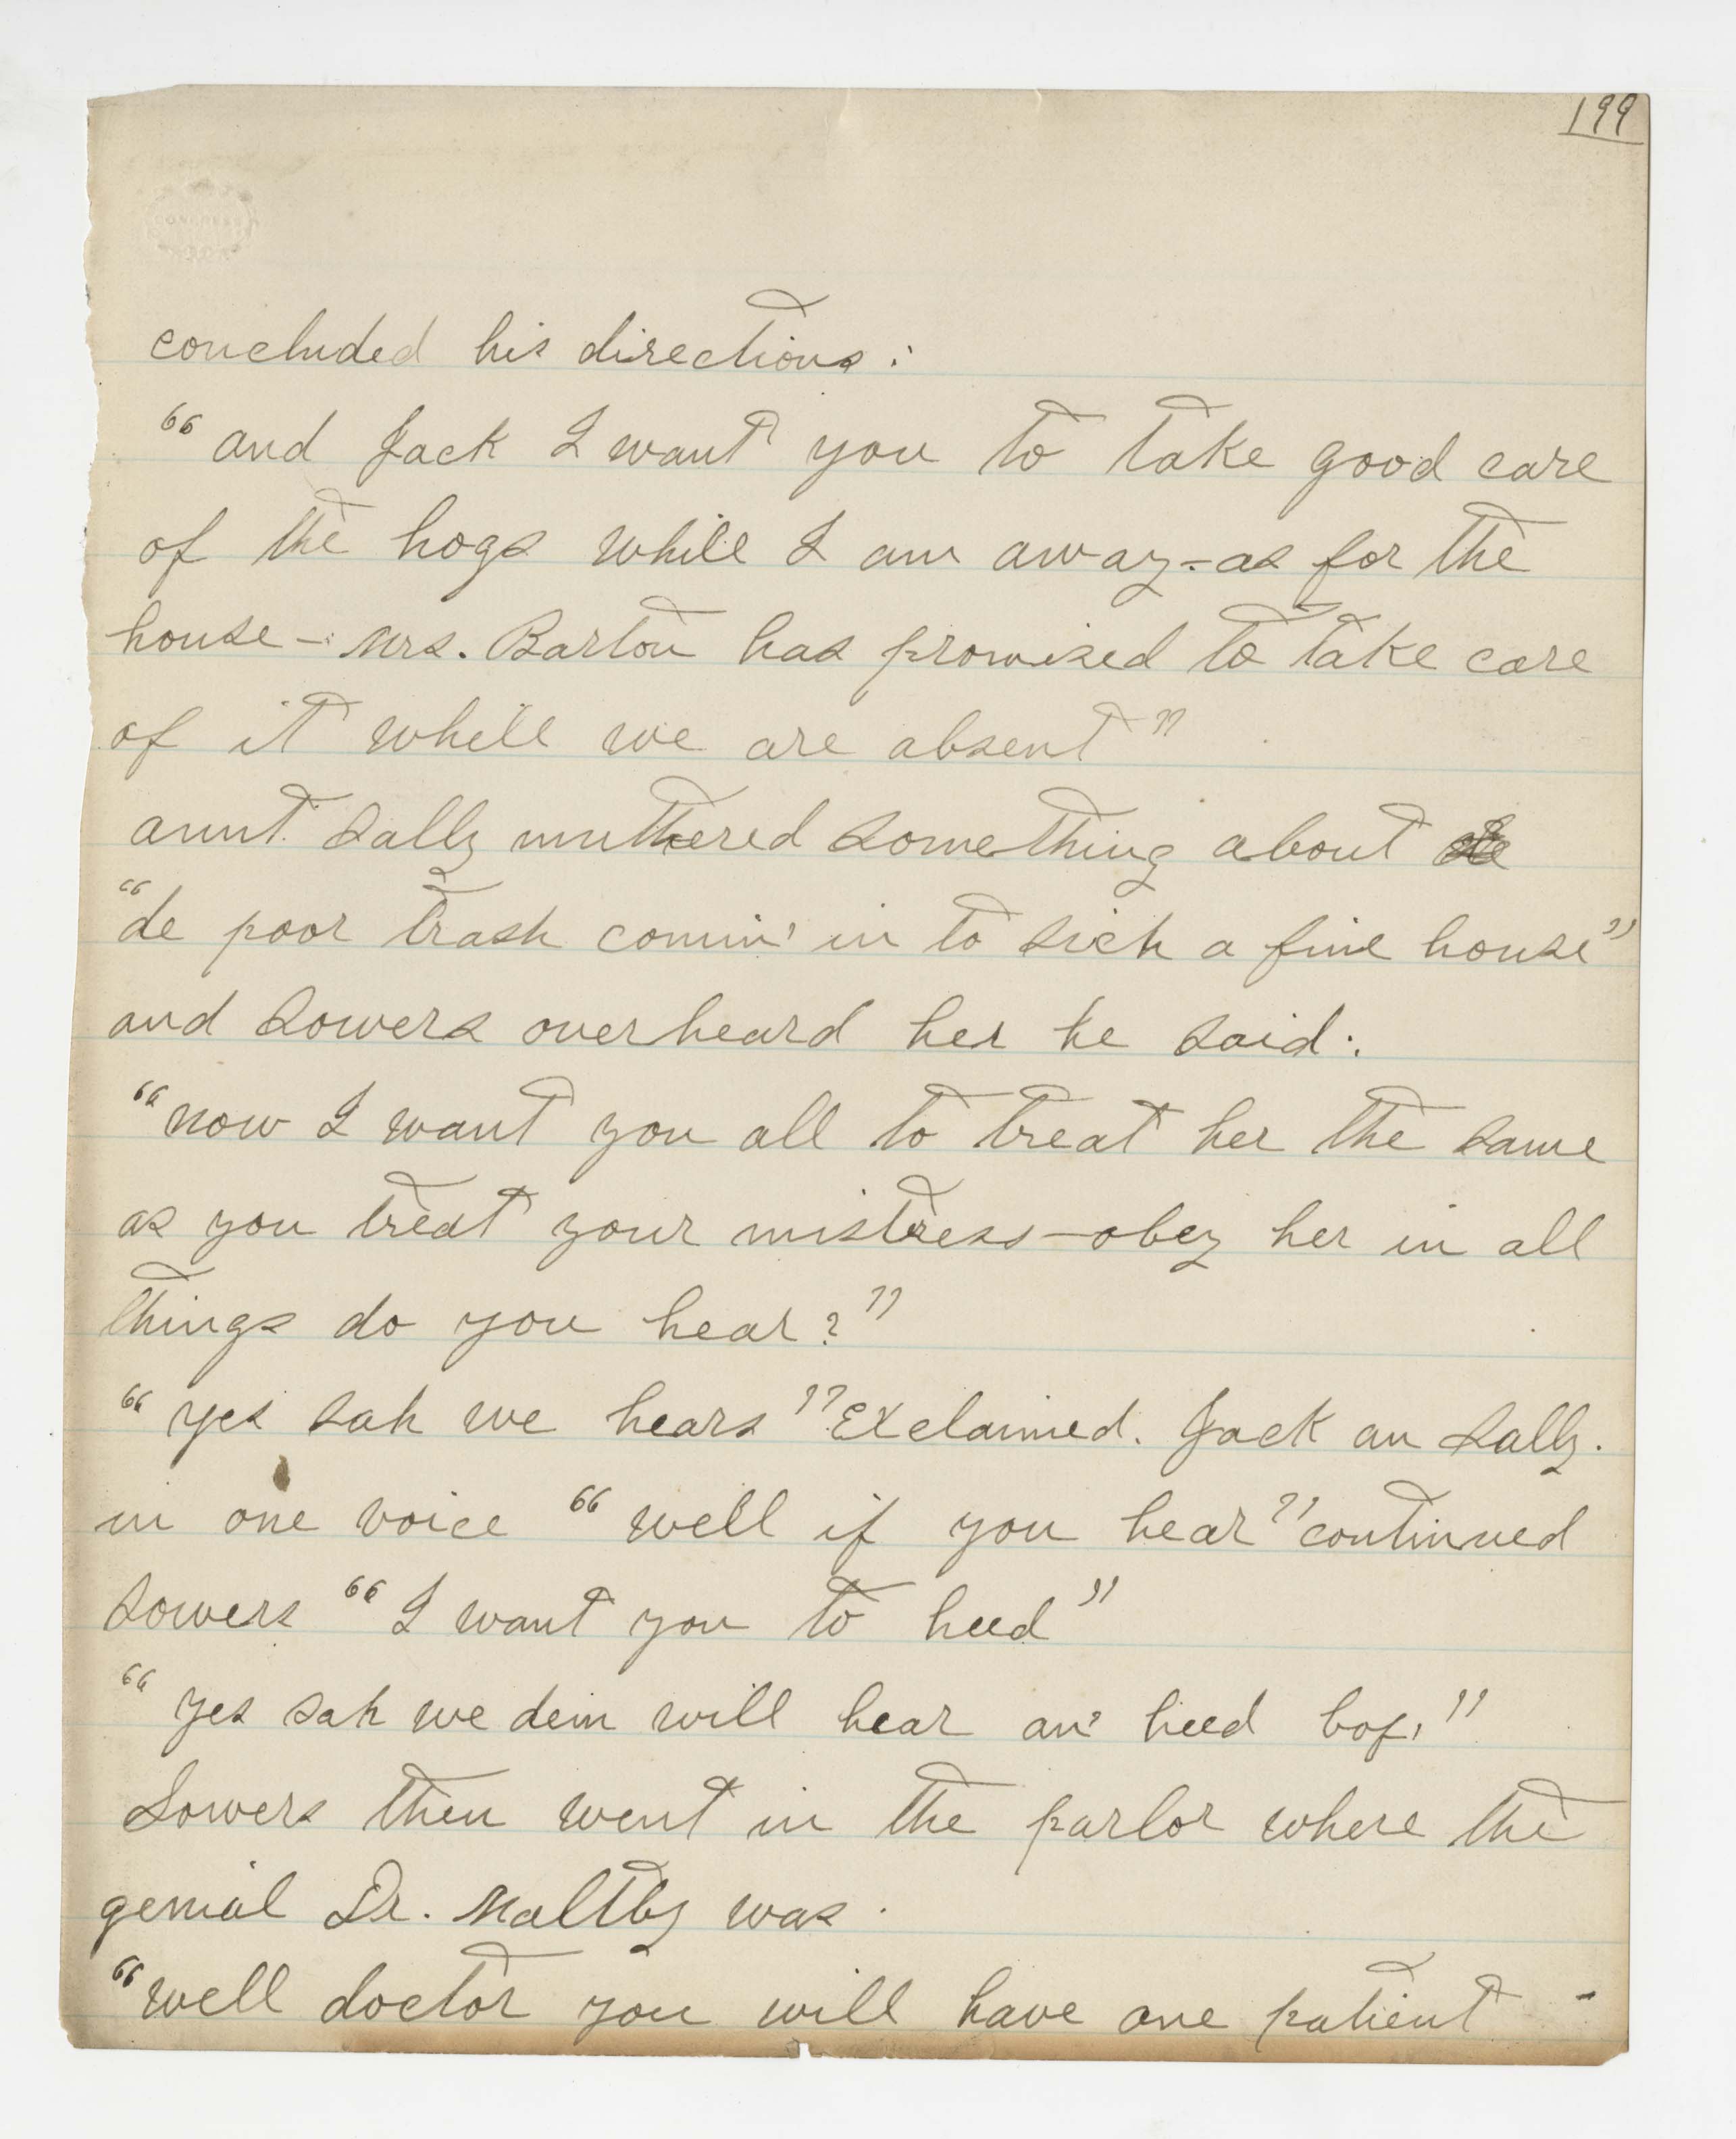 199
concluded his directions:
"and Jack I want you to take good care
of the hogs while I am away - as for the
house - Mrs. Barton has promised to take care
of it while we are absent"
aunt Sally muttered something about
"de poor trash comin' in to sich a fine house"
and Sowers overheard her he said:
"now I want you all to treat her the same
as you treat your mistress - obey her in all
things do you hear?"
"yes sah we hears" Exclaimed. Jack an Sally.
in one voice "well if you hear" continued
Sowers "I want you to heed"
"yes sah we dem will hear an' heed bof."
Sowers then went in the parlor where the
genial Dr. Maltby was.
"well doctor you will have one patient -